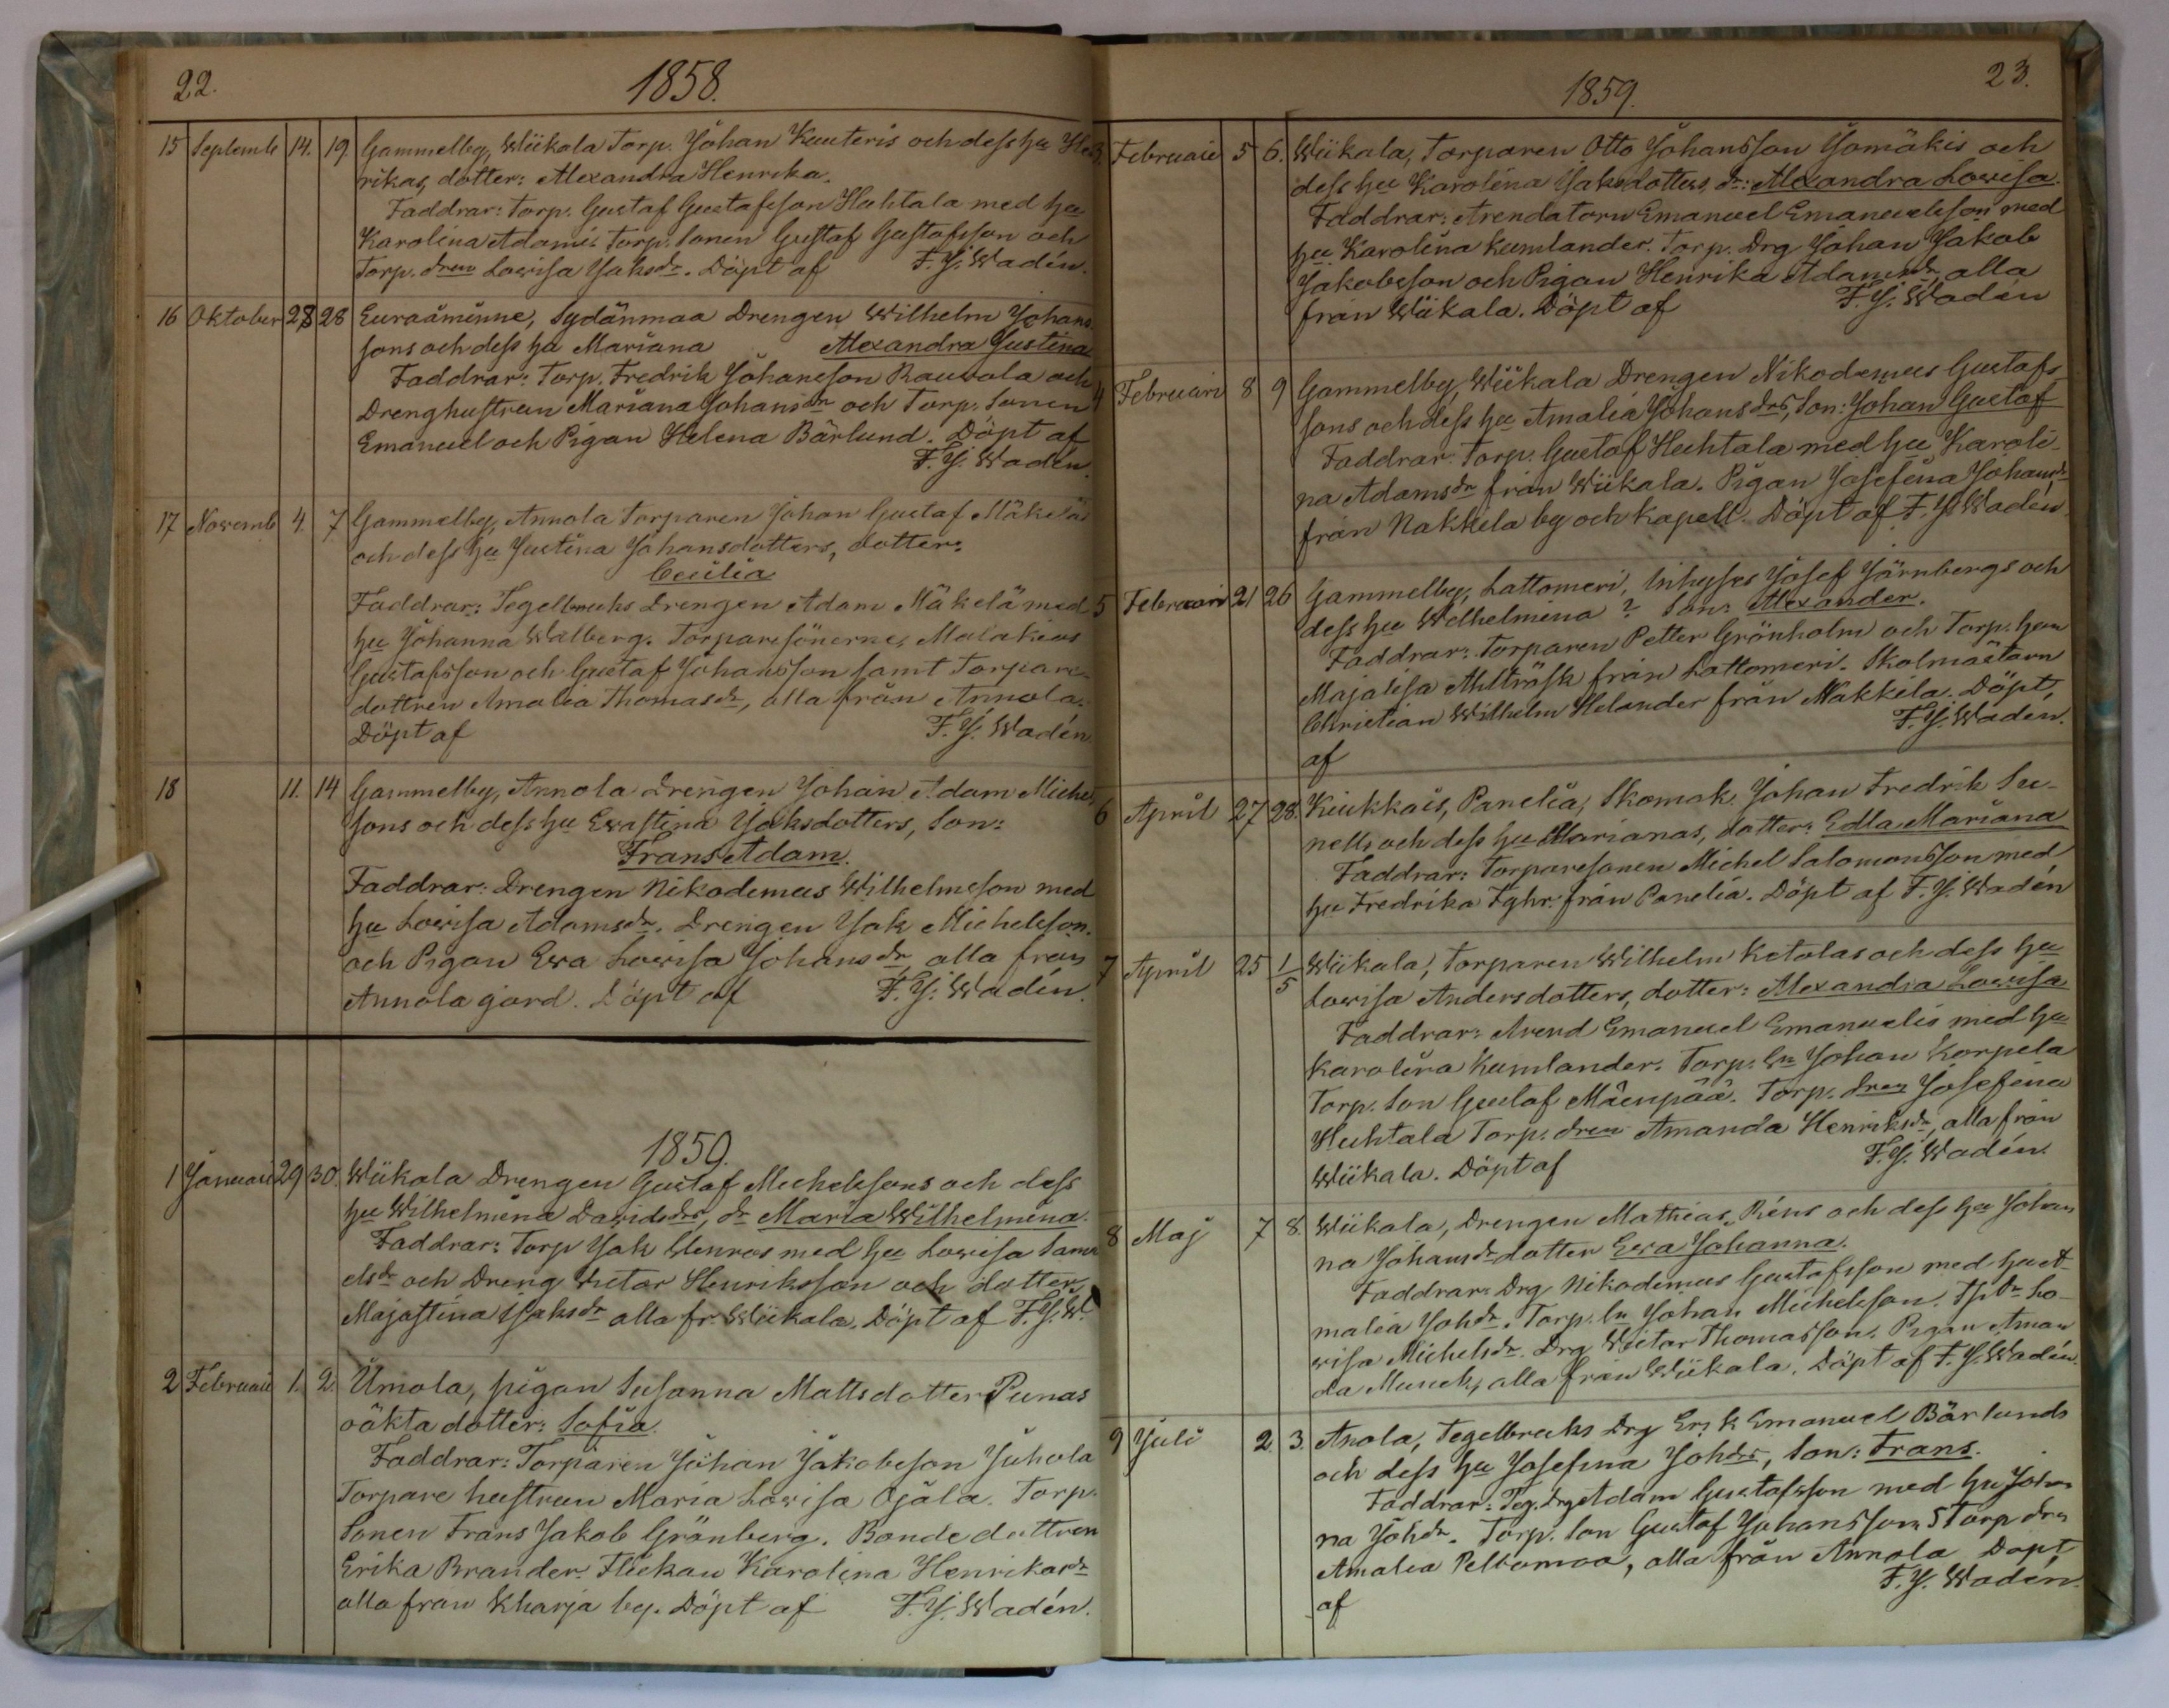 22.
1858.
15 Septemb 14. 19. Gammelby, Wiikala Torp. Johan Kuuteris och dess hu Hen
rikas, dotter: Alexandra Henrika.
Faddrar: Torp. Gustaf Gustafsson Huhtala med hu
Karolina Adams. Torp. Sonen Gustaf Gustafsson och
Torp. dren Lowisa Jaksdr. Döpt af F. J. Wadén.
16 Oktober 23 28 Euraåminne, Sydänmaa Drengen Wilhelm Johans
sons och dess hu Mariana Alexandra Justina
Faddrar: Torp. Fredrik Johansson Rauvola och
Drenghustrun Mariana Johansdr och Torp. Sonen
Emanuel och Pigan Helena Bärlund. Döpt af
F. J. Wadén.
17 Novemb 4. 7 Gammelby, Annola Torparen Johan Gustaf Mäkelä
och dess hu Justina Johansdotters, dotter:
Cecilia
Faddrar: Tegelbruks Drengen Adam Mäkelä med
hu Johanna Walberg. Torparesönerne, Malakias
Gustafsson och Gustaf Johansson samt Torpare-
dottren Amalia Thomasdr, alla från Annola.
Döpt af F. J. Wadén.
18 11. 14 Gammelby, Annola Drengen Johan Adam Michel
sons och dess hu Ewastina Jaksdotters, Son:
Frans Adam.
Faddrar: Drengen Nikodemus Wilhelmsson med
hu Lowisa Adamsdr. Drengen Jak Michelsson.
och Pigan Ewa Lowisa Johansdr alla från
Annola gård. Döpt af F. J. Wadén.
1859.
1 Januari 29 30. Wiikala Drengen Gustaf Michelssons och dess
hu Wilhelmina Davidsdrs, dr Maria Wilhelmina.
Faddrar: Torp Jak Stenros med hu Lowisa Samu
elsdr och Dreng Victor Henriksson och dotter
Majastina Isaksdr alla fr. Wiikala. Döpt af F. J. W.
2 Februari 1. 2. Umola, pigan Susanna Mattsdotter Punas
oäkta dotter: Sofia.
Faddrar: Torparen Johan Jakobsson Juhola
Torpare hustrun Maria Lovisa Ojala. Torp.
Sonen Frans Jakob Grönberg. Bonde dottren
Erika Brander. Flickan Karolina Henriksdr
alla från Kharja by. Döpt af F. J. Wadén.
1859.
23.
3. Februari 5 6. Wiikala, Torparen Otto Johansson Jomäkis och
dess hu Karolina Jaksdotters, dr: Alexandra Lowisa.
Faddrar: Arendatorn Emanuel Emanuelsson med
hu Karolina Kumlander. Torp. Drg Johan Jakob
Jakobsson och Pigan Henrika Adamsdr, alla
från Wiikala. Döpt af F. J. Wadén
4 Februari 8 9 Gammelby, Wiikala Drengen Nikodemus Gustafs
sons och dess hu Amalia Johansdrs, Son: Johan Gustaf
Faddrar Torp. Gustaf Huhtala med hu Karoli-
na Adamsdr från Wiikala. Pigan Josefina Johansdr
från Nakkila by och kapell. Döpt af F. J. Wadén.
5 Februari 21 26 Gammelby, Lattomeri, Inhyses Josef Järnbergs och
dess hu Wilhelmina ? Son: Alexander.
Faddrar: Torparen Petter Grönholm och Torp. hun
Majalisa Ahlträsk från Lattomeri. Skolmästarn
Christian Wilhelm Helander från Nakkila. Döpt,
af F. J. Wadén.
6 April 27 28. Kiukkais, Panelia, Skomak. Johan Fredrik Su-
nells och dess hu Marianas, dotter: Edla Mariana
Faddrar: Torparesonen Michel Salomonsson med
hu Fredrika Fghr. från Panelia. Döpt af F. J. Wadén
7 April 25 1/5 Wiikala, Torparen Wilhelm Ketolas och dess hu
Lovisa Andersdotters, dotter: Alexandra Lowisa
Faddrar: Arend Emanuel Emanuelis med hu
Karolina Kumlander. Torp. Sn Johan Korpela
Torp. Son Gustaf Mäenpää. Torp. dren Josefina
Huhtala Torp. dren Amanda Henriksdr, alla från
Wiikala. Döpt af F. J. Wadén.
8 Maj 7 8. Wiikala, Drengen Mathias Réns och dess hu Johan
na Johansdr dotter Ewa Johanna.
Faddrar: Drg Nikodemus Gustafsson med hu A-
malia Johdr. Torp. Sn Johan Michelsson. Tpdr Lo-
wisa Michelsdr. Drg Victar Thomasson. Pigan Aman
da Munck, alla från Wiikala. Döpt af F. J. Wadén.
9 Juli 2. 3. Anola, Tegelbruks Drg Erik Emanuel Bärlunds
och dess hu Josefina Johdrs, Son: Frans.
Faddrar: Teg. Drg Adam Gustafsson med hu Johan
na Johdr. Torp. Son Gustaf Johansson, Torp drn
Amalia Peltomaa, alla från Annola Döpt
af F. J. Wadén.